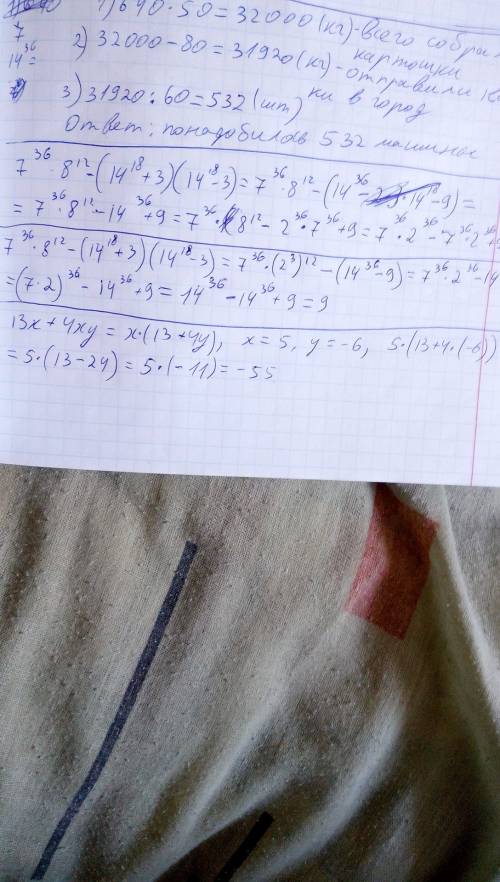 1) 640 · 50 = 32000 (кг) - всего собрали
7
картошки
14³⁶ =
2) 32000 - 80 = 31920 (кг) - отправили
3) 31920 : 60 = 532 (шт)
ки в город
Ответ: понадобилось 532 машины
7³⁶ · 8¹² - (14¹⁸ + 3)(14¹⁸ - 3) = 7³⁶ · 8¹² - (14³⁶ - 9) =
= 7³⁶ · 8¹² - 14³⁶ + 9 = 7³⁶ · 8¹² - 2³⁶ · 7³⁶ + 9 = 7³⁶ · 2³⁶ - 7³⁶ · 2³⁶ +
7³⁶ · 8¹² - (14¹⁸ + 3)(14¹⁸ - 3) = 7³⁶ · (2³)¹² - (14³⁶ - 9) = 7³⁶ · 2³⁶ - 14
= (7 · 2)³⁶ - 14³⁶ + 9 = 14³⁶ - 14³⁶ + 9 = 9
13x + 4xy = x · (13 + 4y), x = 5, y = -6, 5 · (13 + 4 · (-6))
= 5 · (13 - 24) = 5 · (-11) = -55